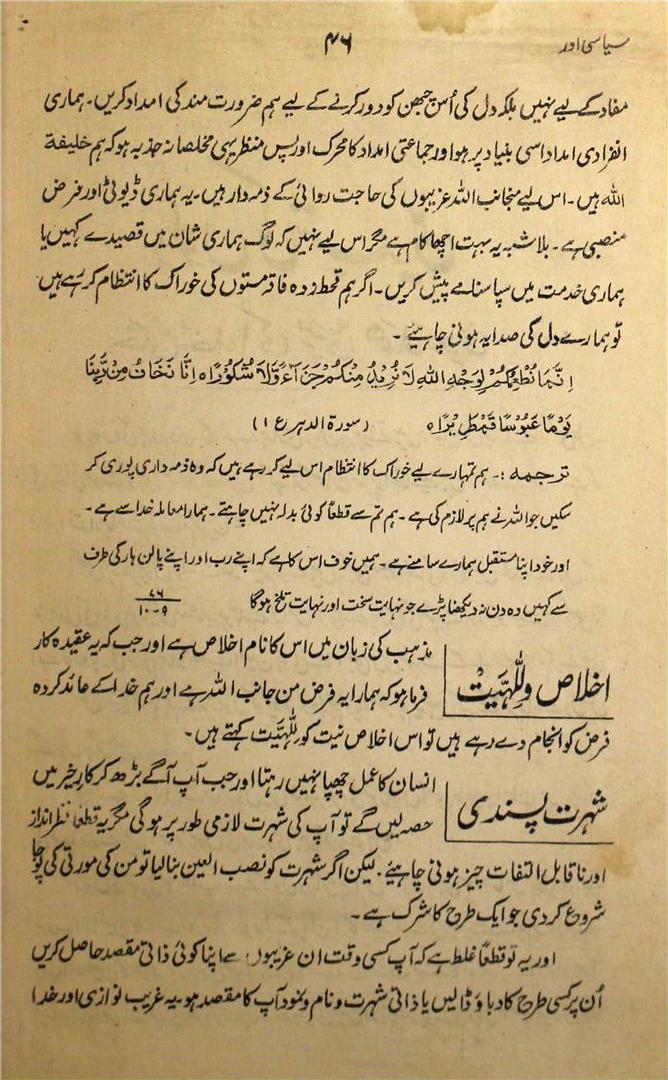 سیاسی اور
۴۶
مفاد کے لیے نہیں بلکہ دل کی اُس چبھن کو دور کرنے کے لیے ہم ضرورت مند کی امداد کریں۔ ہماری
انفرادی امداد اسی بنیاد پر ہو اور جماعتی امداد کا محرک اور پس منظر یہی مخلصانہ جذبہ ہو کہ ہم خلیفۃ
اللہ ہیں۔ اس لیے منجانب اللہ غریبوں کی حاجت روائی کے ذمہ دار ہیں۔ یہ ہماری ڈیوٹی اور فرض
منصبی ہے۔ بلاشبہ یہ بہت اچھا کام ہے مگر اس لیے نہیں کہ لوگ ہماری شان میں قصیدے کہیں یا
ہماری خدمت میں سپاسنامے پیش کریں۔ اگر ہم قحط زدہ فاقہ مستوں کی خوراک کا انتظام کر رہے ہیں
تو ہمارے دل کی صدا یہ ہونی چاہیئے۔
اِنَّمَا نُطْعِمُكُمْ لِوَجْهِ اللهِ لَا نُرِيْدُ مِنْكُمْ جَزَآءً وَّلَا شُكُوْرًا ہ اِنَّا نَخَافُ مِنْ رَّبِّنَا
يَوْمًا عَبُوْسًا قَمْطَرِيْرًا ہ (سورۃ الدہر ع ۱)
ترجمہ :۔ ہم تمہارے لیے خوراک کا انتظام اس لیے کر رہے ہیں کہ وہ ذمہ داری پوری کر
سکیں جو اللہ نے ہم پر لازم کی ہے۔ ہم تم سے قطعاً کوئی بدلہ نہیں چاہتے۔ ہمارا معاملہ خدا سے ہے۔
اور خود اپنا مستقبل ہمارے سامنے ہے۔ ہمیں خوف اس کا ہے کہ اپنے رب اور اپنے پالن ہار کی طرف
سے کہیں وہ دن نہ دیکھنا پڑے جو نہایت سخت اور نہایت تلخ ہوگا ۷۶ / ۱۰-۹
اخلاص وللّٰہیت
مذہب کی زبان میں اس کا نام اخلاص ہے اور جب کہ یہ عقیدہ کار
فرما ہو کہ ہمارا یہ فرض من جانب اللہ ہے اور ہم خدا کے عائد کردہ
فرض کو انجام دے رہے ہیں تو اس اخلاص نیت کو للّٰہیت کہتے ہیں۔
شہرت پسندی
انسان کا عمل چھپا نہیں رہتا اور جب آپ آگے بڑھ کر کارِ خیر میں
حصہ لیں گے تو آپ کی شہرت لازمی طور پر ہوگی مگر یہ قطعاً نظر انداز
اور ناقابل التفات چیز ہونی چاہیئے۔ لیکن اگر شہرت کو نصب العین بنا لیا تو من کی مورتی کی پوجا
شروع کر دی جو ایک طرح کا شرک ہے۔
اور یہ تو قطعاً غلط ہے کہ آپ کسی وقت ان غریبوں سے اپنا کوئی ذاتی مقصد حاصل کریں
اُن پر کسی طرح کا دباؤ ڈالیں یا ذاتی شہرت و نام و نمود آپ کا مقصد ہو۔ یہ غریب نوازی اور خدا